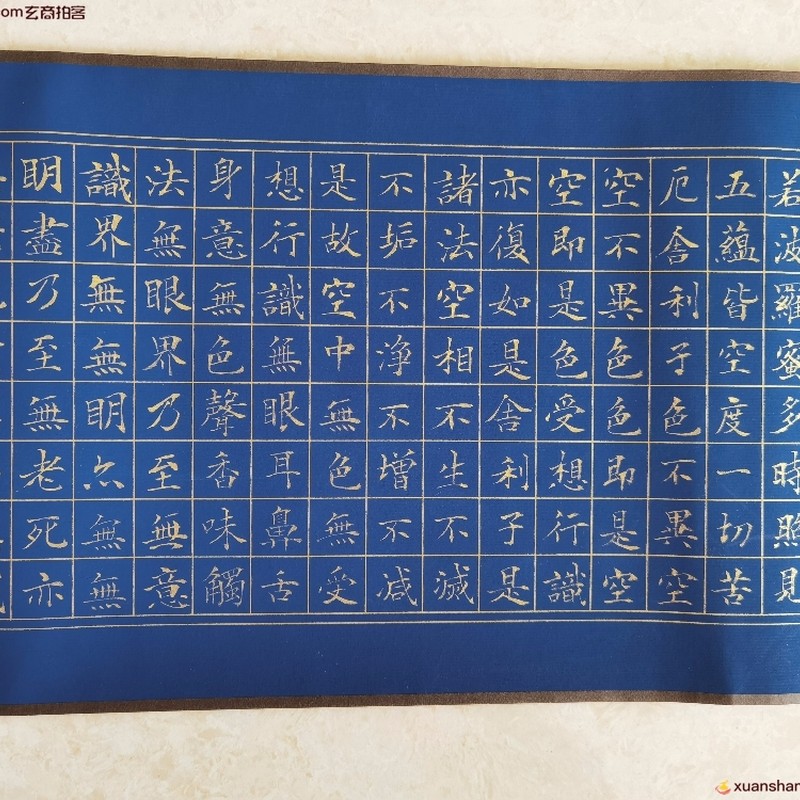 om玄商拍客
若波羅蜜多時照見
五蘊皆空度一切苦
厄舍利子色不異空
空不異色色即是空
空即是色受想行識
亦復如是舍利子是
諸法空相不生不滅
不垢不淨不增不減
是故空中無色無受
想行識無眼耳鼻舌
身意無色聲香味觸
法無眼界乃至無意
識界無無明亦無無
明盡乃至無老死亦
xuanshan